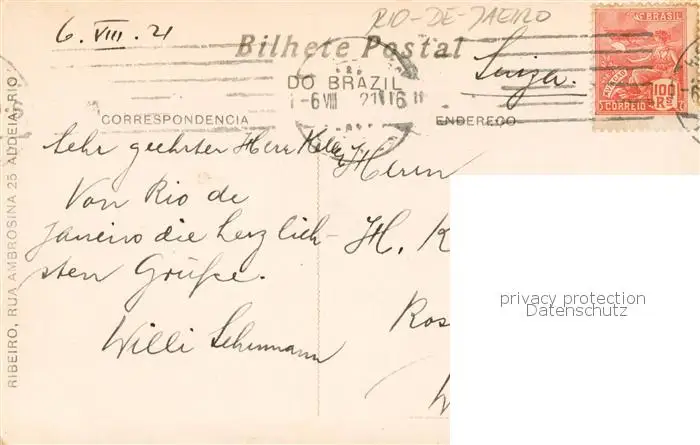 RIO-DE-JANEIRO
6. VIII. 21
Bilhete Postal
BRASIL
AVIAÇÃO
100 RS
CORREIO
Suiza.
DO BRAZIL
-6 VIII 21 16
CORRESPONDENCIA
ENDEREÇO
Sehr geehrter Herr
Von Rio de
Janeiro die herzlich-
sten Grüße.
Willi Schumann
Herrn
H. K
Ros
W
RIBEIRO, RUA AMBROSINA 25 ALDEIA, RIO
privacy protection
Datenschutz